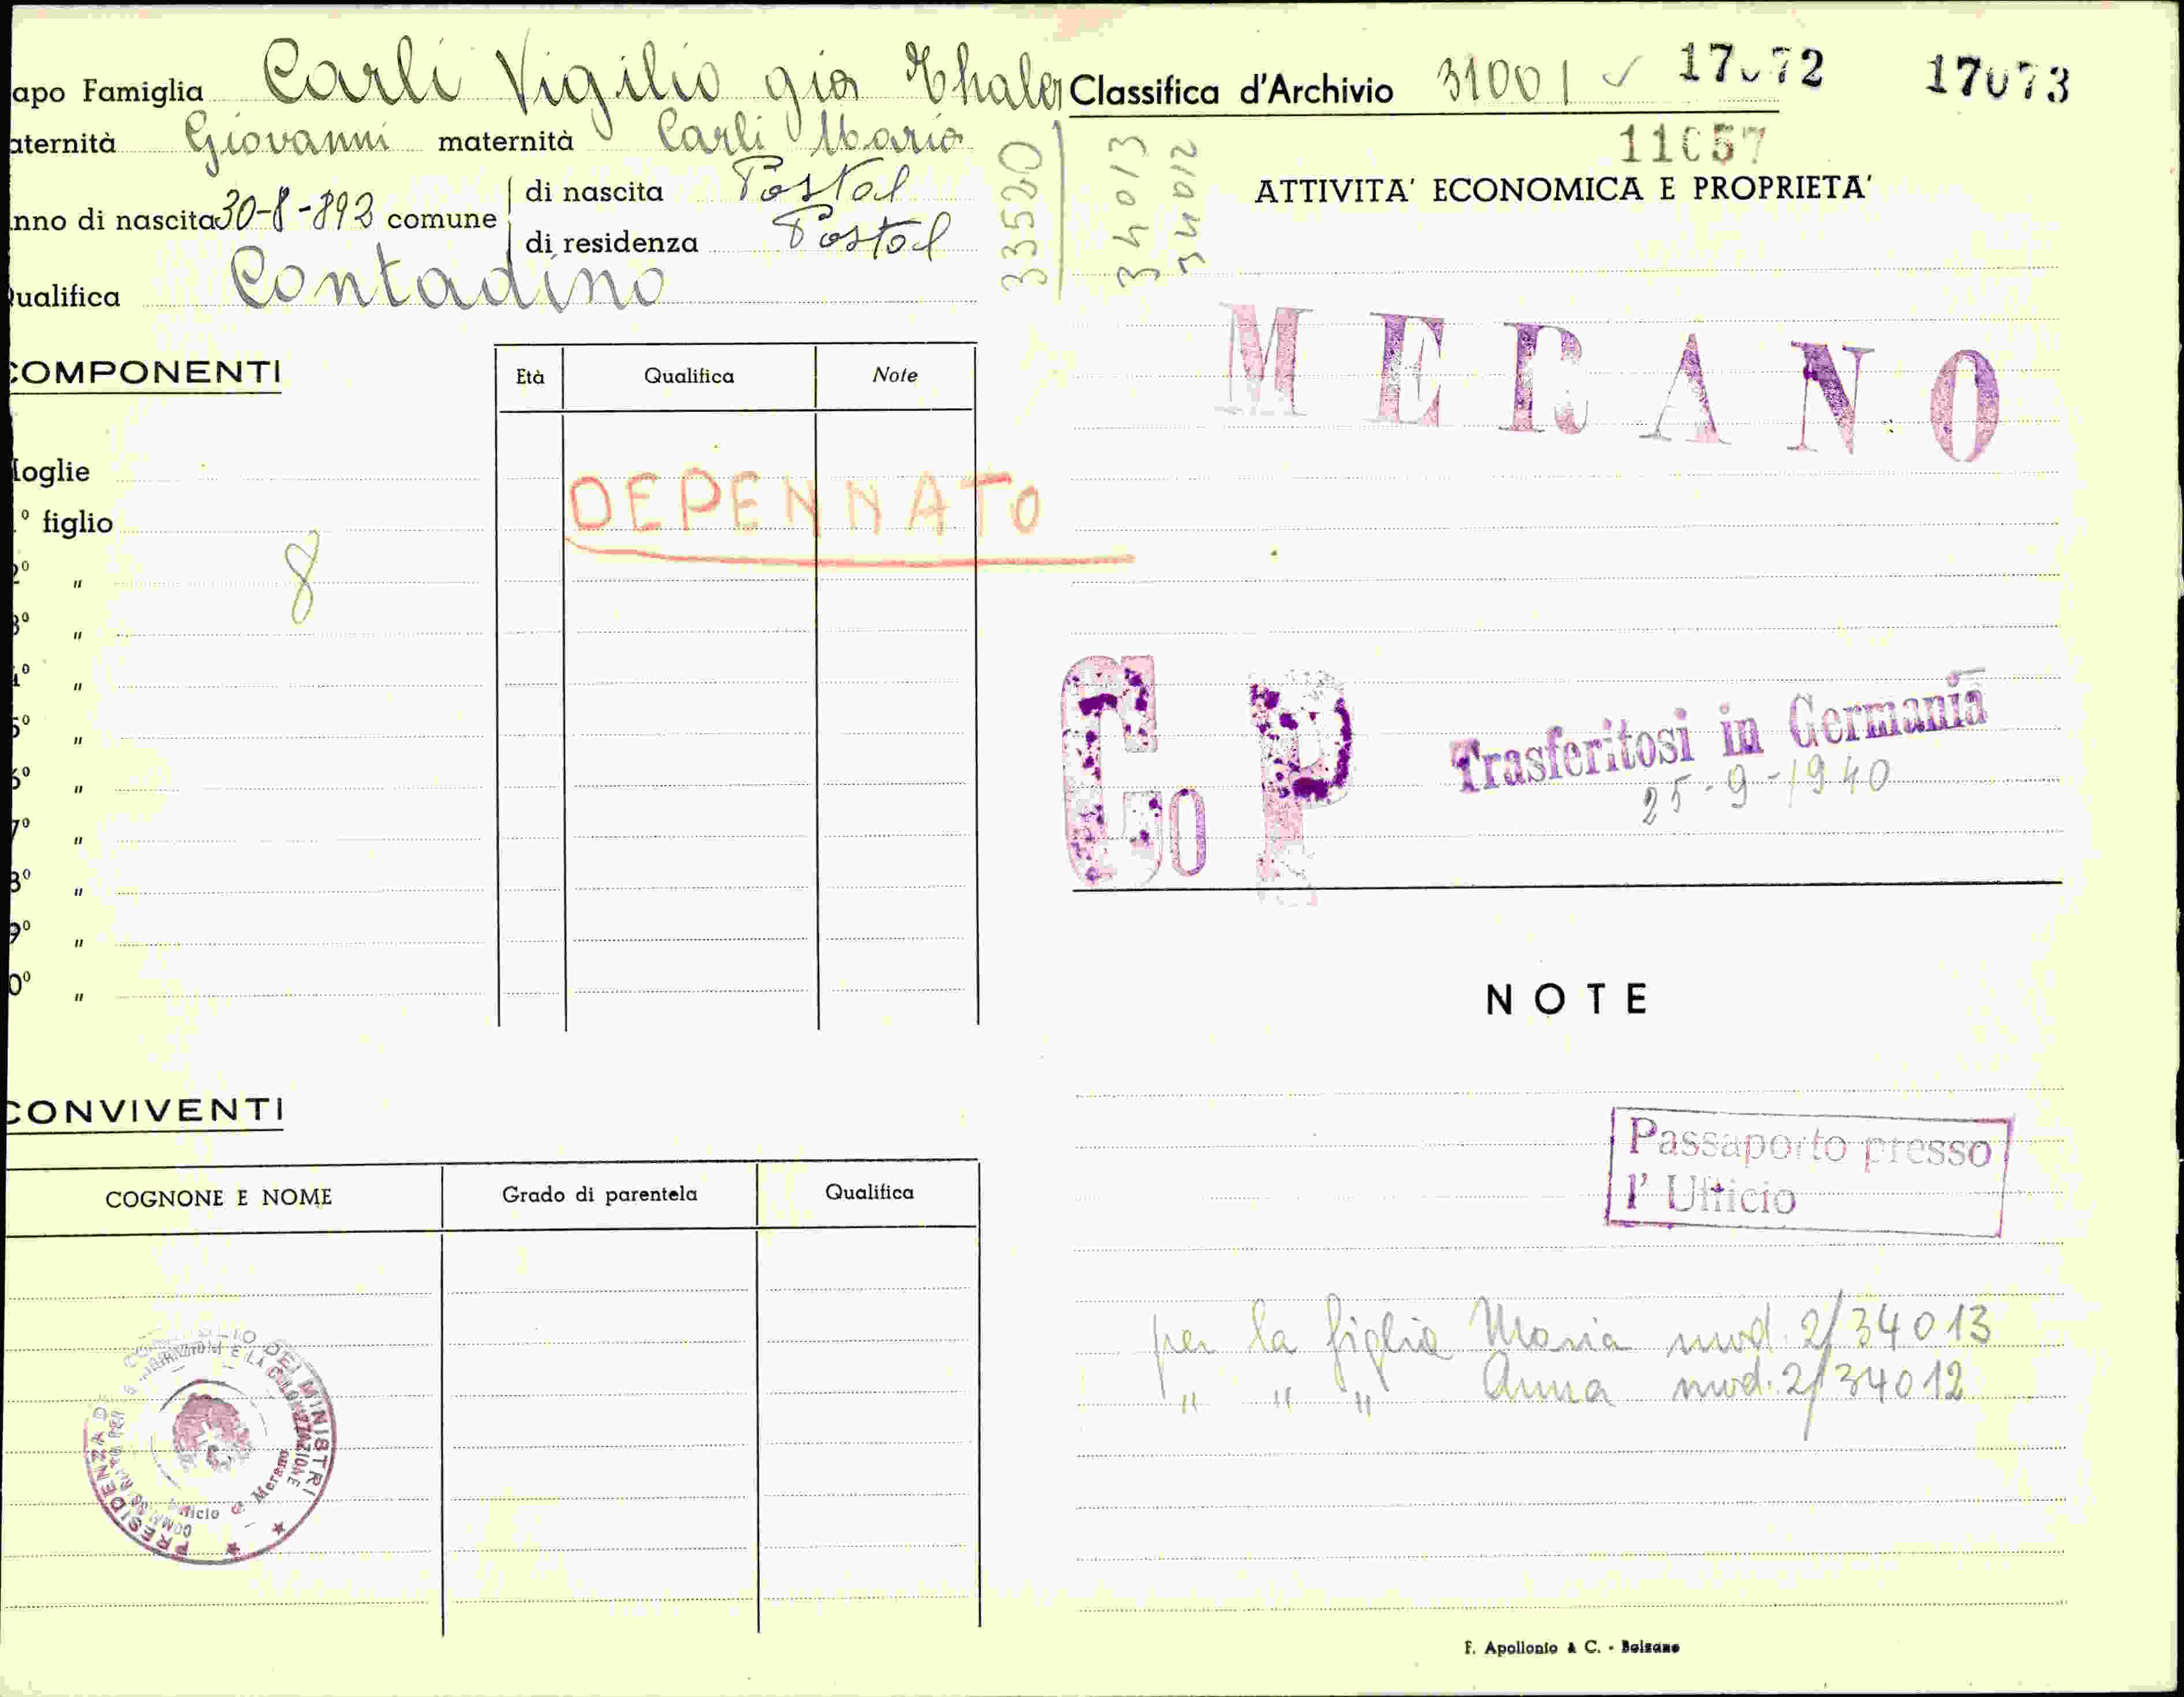 apo Famiglia Carli Vigilio già Thaler
aternità Giovanni maternità Carli Maria
nno di nascita 30-8-893 comune
di nascita Postal
di residenza Postal
ualifica Contadino
33520
34013
34012
Classifica d'Archivio 31001 17072 17073
11057
ATTIVITA' ECONOMICA E PROPRIETA'
MERANO
COMPONENTI
Età Qualifica Note
oglie
° figlio
2° "
3° "
4° "
5° "
6° "
7° "
8° "
9° "
0° "
8
DEPENNATO
Co P
Trasferitosi in Germania
25-9-1940
NOTE
Passaporto presso
l' Ufficio
per la figlia Maria mod. 2/34013
" " " Anna mod. 2/34012
CONVIVENTI
COGNONE E NOME Grado di parentela Qualifica
PRESIDENZA DEI MINISTRI
E LA COLONIZZAZIONE
Merano
F. Apollonio & C. - Bolzano